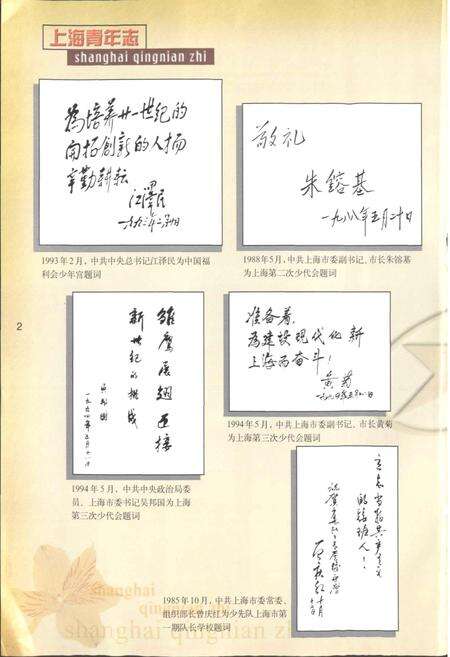 上海青年志
shanghai qingnian zhi
為培养廿一世纪的
开拓創新的人才而
辛勤耕耘
江澤民
1993年2月，中共中央总书记江泽民为中国福
利会少年宫题词
敬礼
朱鎔基
一九八八年五月二十日
1988年5月，中共上海市委副书记、市长朱镕基
为上海第二次少代会题词
2
雏鹰展翅迎接
新世纪的挑战
吴邦国
1994年5月，中共中央政治局委
员、上海市委书记吴邦国为上海
第三次少代会题词
准备着，
为建设现代化新
上海而奋斗！
黄菊
1994年5月，中共上海市委副书记、市长黄菊
为上海第三次少代会题词
的接班人！
1985年10月，中共上海市委常委、
组织部长曾庆红为少先队上海市第
一期队长学校题词
shanghai
qingnian
shanghai qingnian zhi